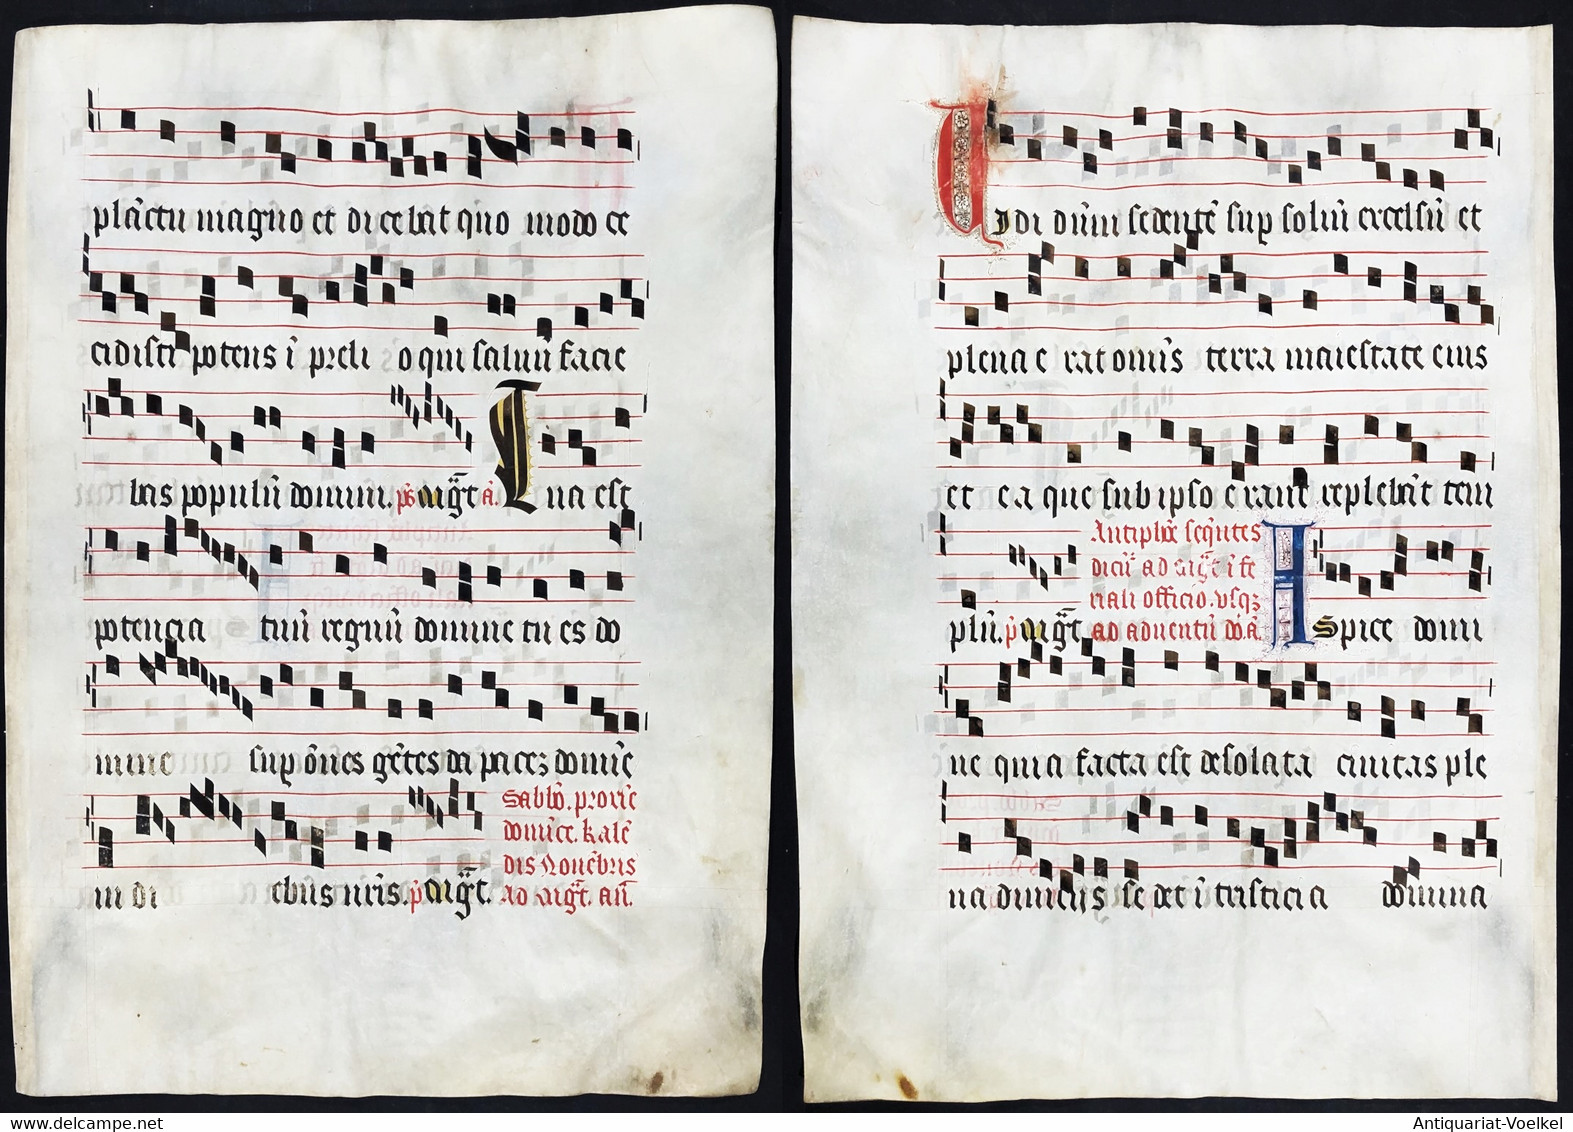 plāctu magno et dicebat quo modo ce
cidisti potens ī preli o qui saluū facie
bas populū domini. p̄s aigt̄ ā. Tua est
potencia tuū regnū domine tu es do
mine sup ōnes gētes da pacez domīe
in di ebus nr̄is. p̄ aigt̄.
Sabb̄o. proxīe
domīce. kalē
dis Nouēbris
ad aigt̄. añ.
Uidi dūm sedentē sup soliū excelsū et
plena e rat omīs terra maiestate eius
et e a que sub ipso erant replebāt tem
plū. p̄ aigt̄
Antiphe seqūtes
dicūt ad aigt̄ ī fe
riali officio. vsqz
ad aduentū do. ā.
Aspice domi
ne quia facta est desolata ciuitas ple
na diuicijs se det ī tristicia domina
Antiquariat-Voelkel
www.delcampe.net